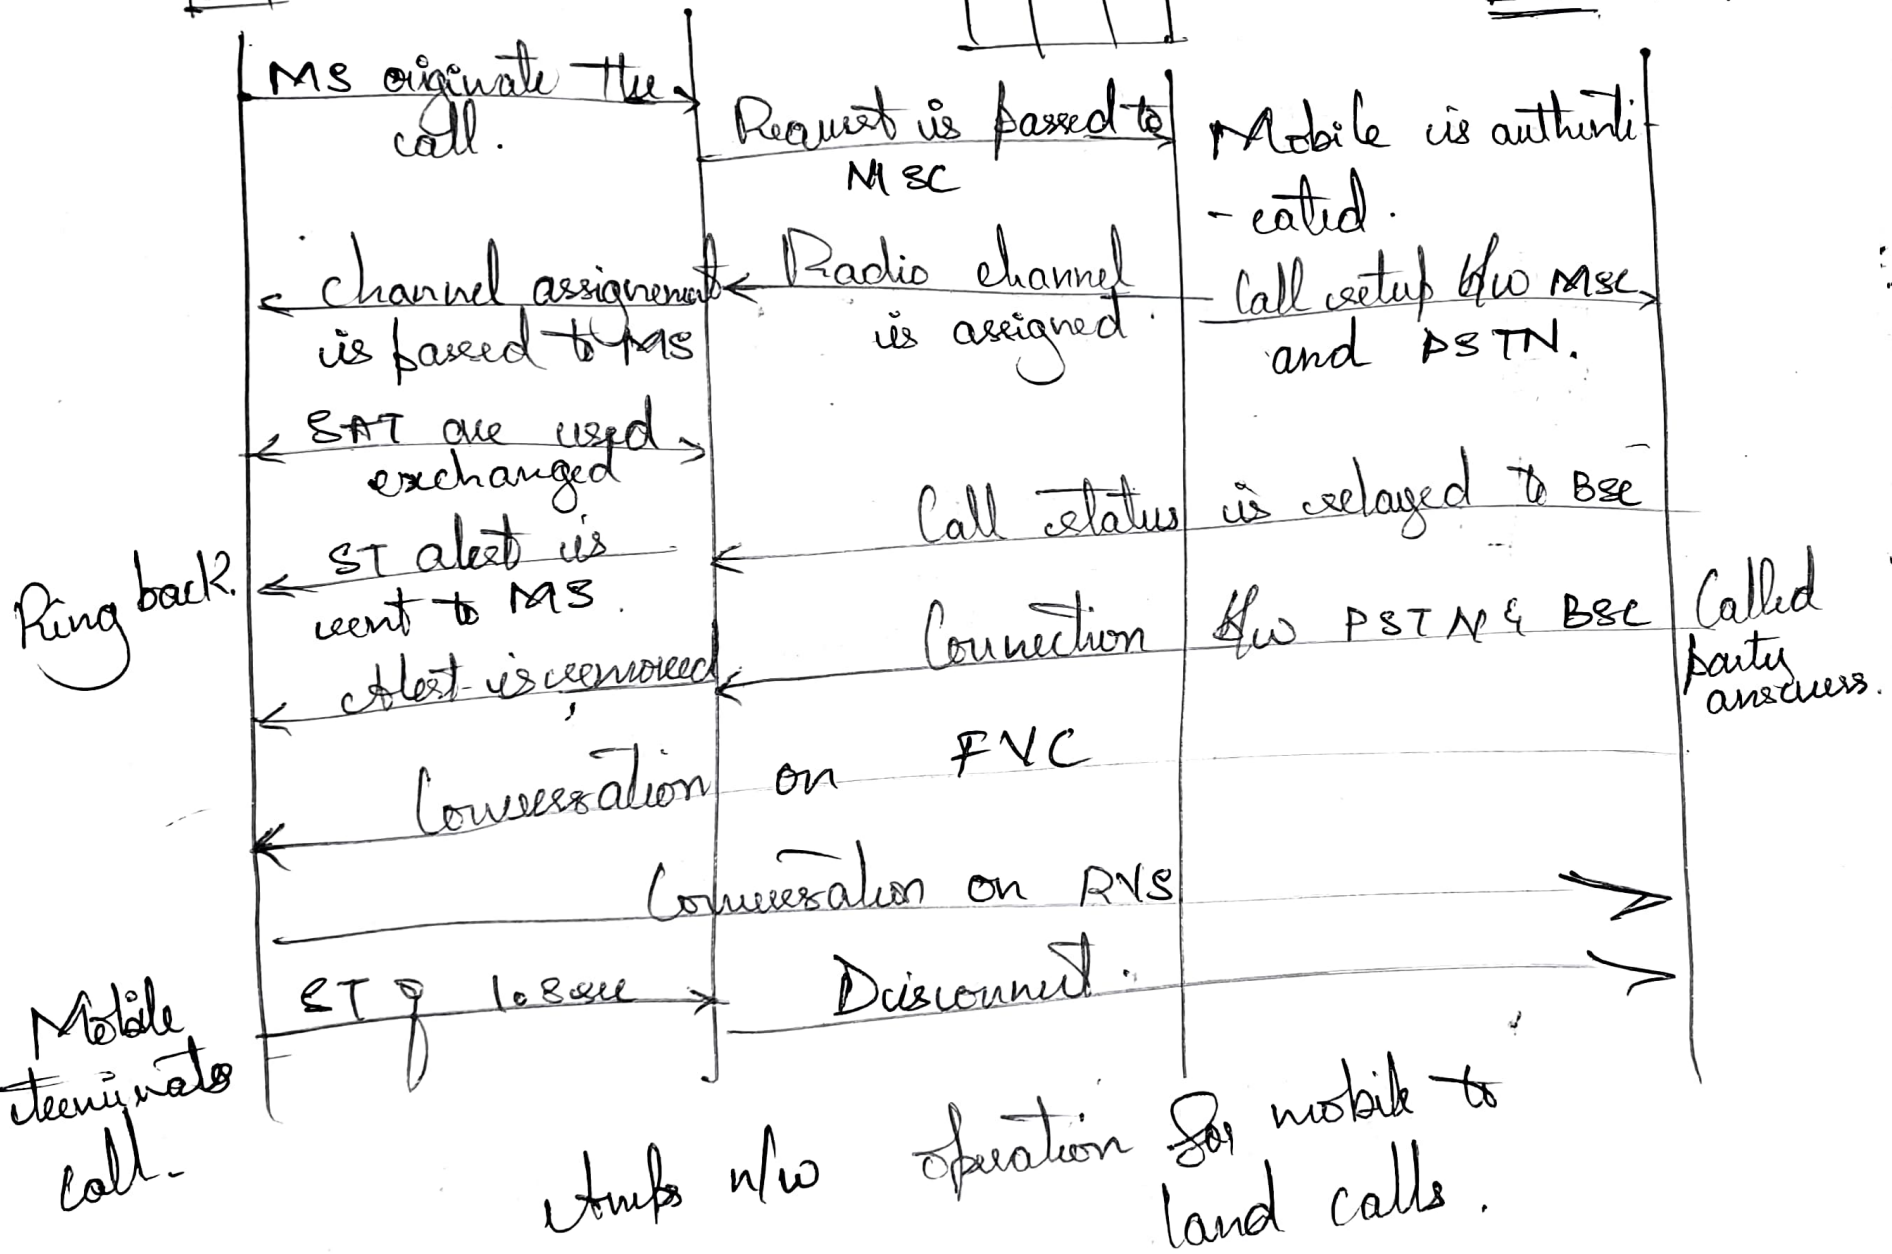 MS originate the
call.
Request is passed to
MSC
Mobile is authenti
-cated.
Channel assignement
is passed to MS
Radio channel
is assigned.
Call setup b/w MSC
and PSTN.
SAT are used
exchanged
Call status is relayed to BSC
Ring back.
ST alert is
sent to MS.
Connection b/w PSTN & BSC
Called
party
answers.
Alert is removed
Conversation on FVC
Conversation on RVS
Mobile
terminates
call.
ST of 1.8 sec
Disconnect.
Amps n/w operation for mobile to
land calls.